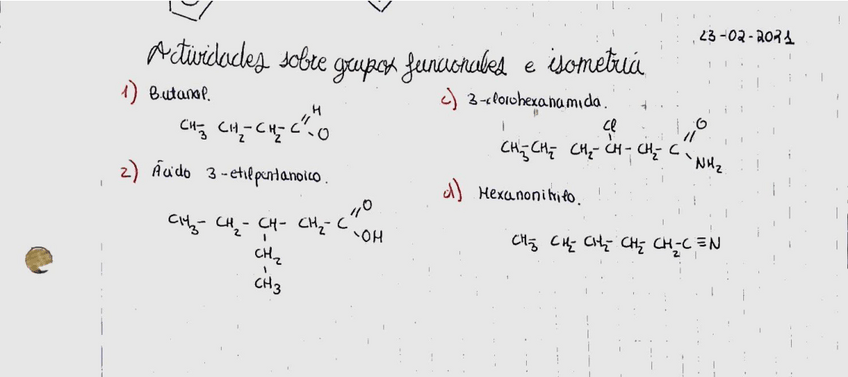 23-02-2021
Actividades sobre grupos funcionales e isometría
1) Butanal.
H
CH3- CH2-CH2-C
O
2) Ácido 3-etilpentanoico.
O
CH3- CH2- CH- CH2-C
OH
CH2
CH3
c) 3-clorohexanamida.
Cl
O
CH3-CH2- CH2-CH- CH2-C
NH2
d) Hexanonitrilo.
CH3- CH2- CH2- CH2- CH2-C≡N